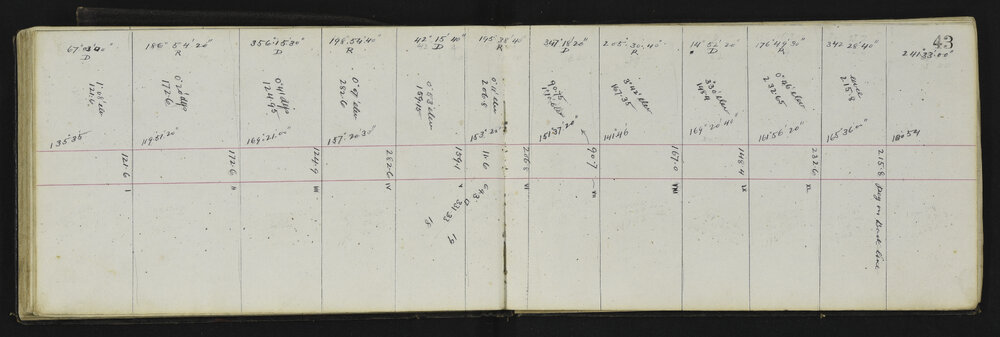 43
67°03'40" 186° 54' 20" 356°15'30" 198.54'40" 42° 15' 40" 195°38'40" 347°18'20" 205°.30.40" 14° 52' 20" 176°49'30" 342 28'40" 241°33'00"
D R D R D R D R D R
1°08' elev
121.6
0°20' dep
172.6
0°41' dep
124.95
0°07' elev
282.6
0°53' elev
159.15
0°11' elev
206.8
90.75
1°10' elev
3°42' elev
167.35
3°30' elev
148.9
0°46' elev
232.65
level
215.8
135°35' 119°51'20" 169°21'00" 157°20'30" 153°21' 151°37'20" 141°46' 169°20'40" 161°56'20" 165°36'00" 180°54'
121.6 172.6 124.9 282.6 159.1 11.6 206.8 90.7 167.0 148.4 232.6 215.8 peg on Base line
I II III IV V VI VII VIII IX XI